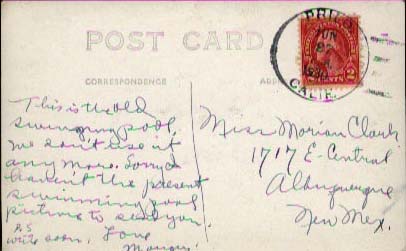 POST CARD
CORRESPONDENCE
This is the old
swimming pool,
we don't use it
any more. Sorry I
haven't the present
swimming pool
picture to send you.
P.S.
write soon. Love
Miss Marian Clark
1717 E. Central
Albuquerque
New Mex.
JUN
CALIF.
CENTS 2